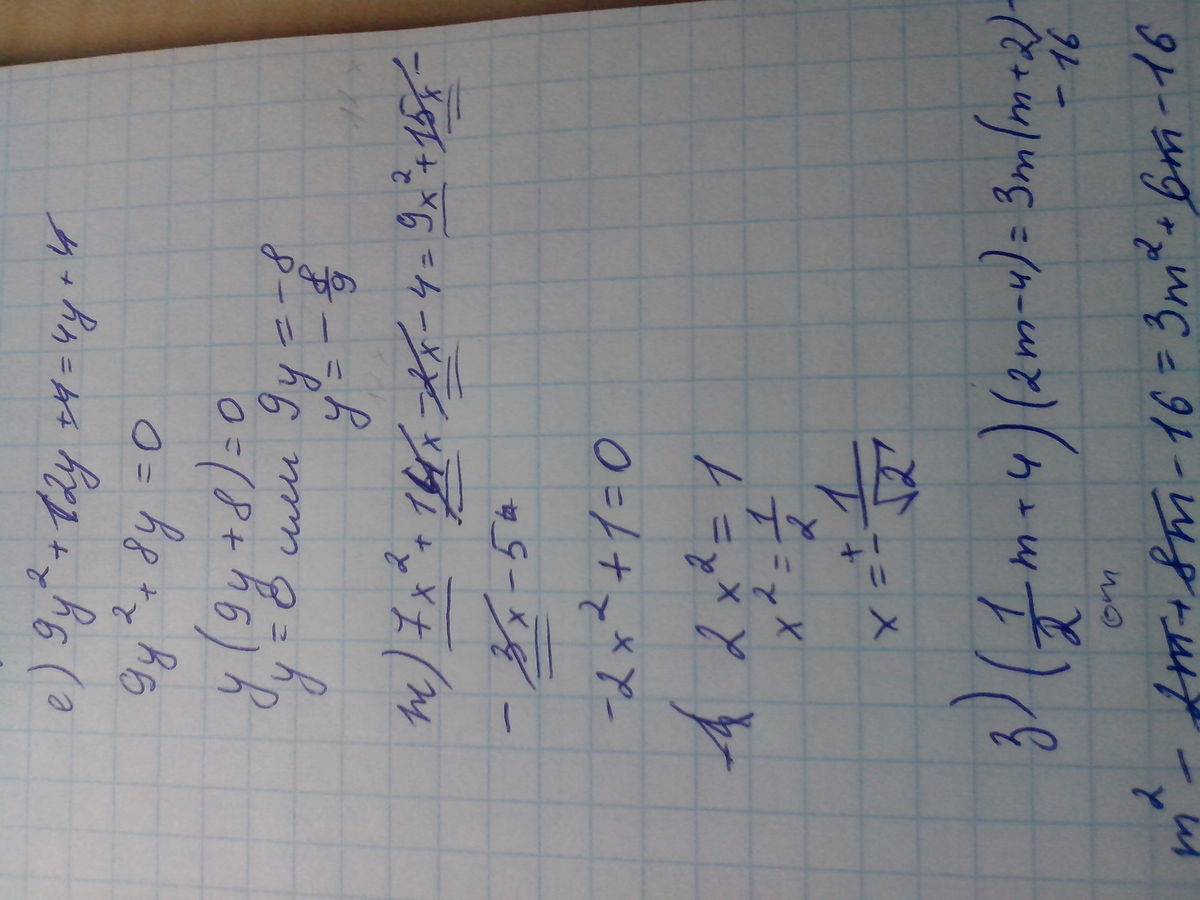 е) 9y² + 12y + 4 = 4y + 4
9y² + 8y = 0
y(9y + 8) = 0
y = 0 или 9y = -8
y = -8/9
ж) 7x² + 14x - 2x - 4 = 9x² + 15x -
- 3x - 5
-2x² + 1 = 0
2x² = 1
x² = 1/2
x = ± 1/√2
з) (1/2 m + 4)(2m - 4) = 3m(m + 2) -
- 16
m² - 2m + 8m - 16 = 3m² + 6m - 16